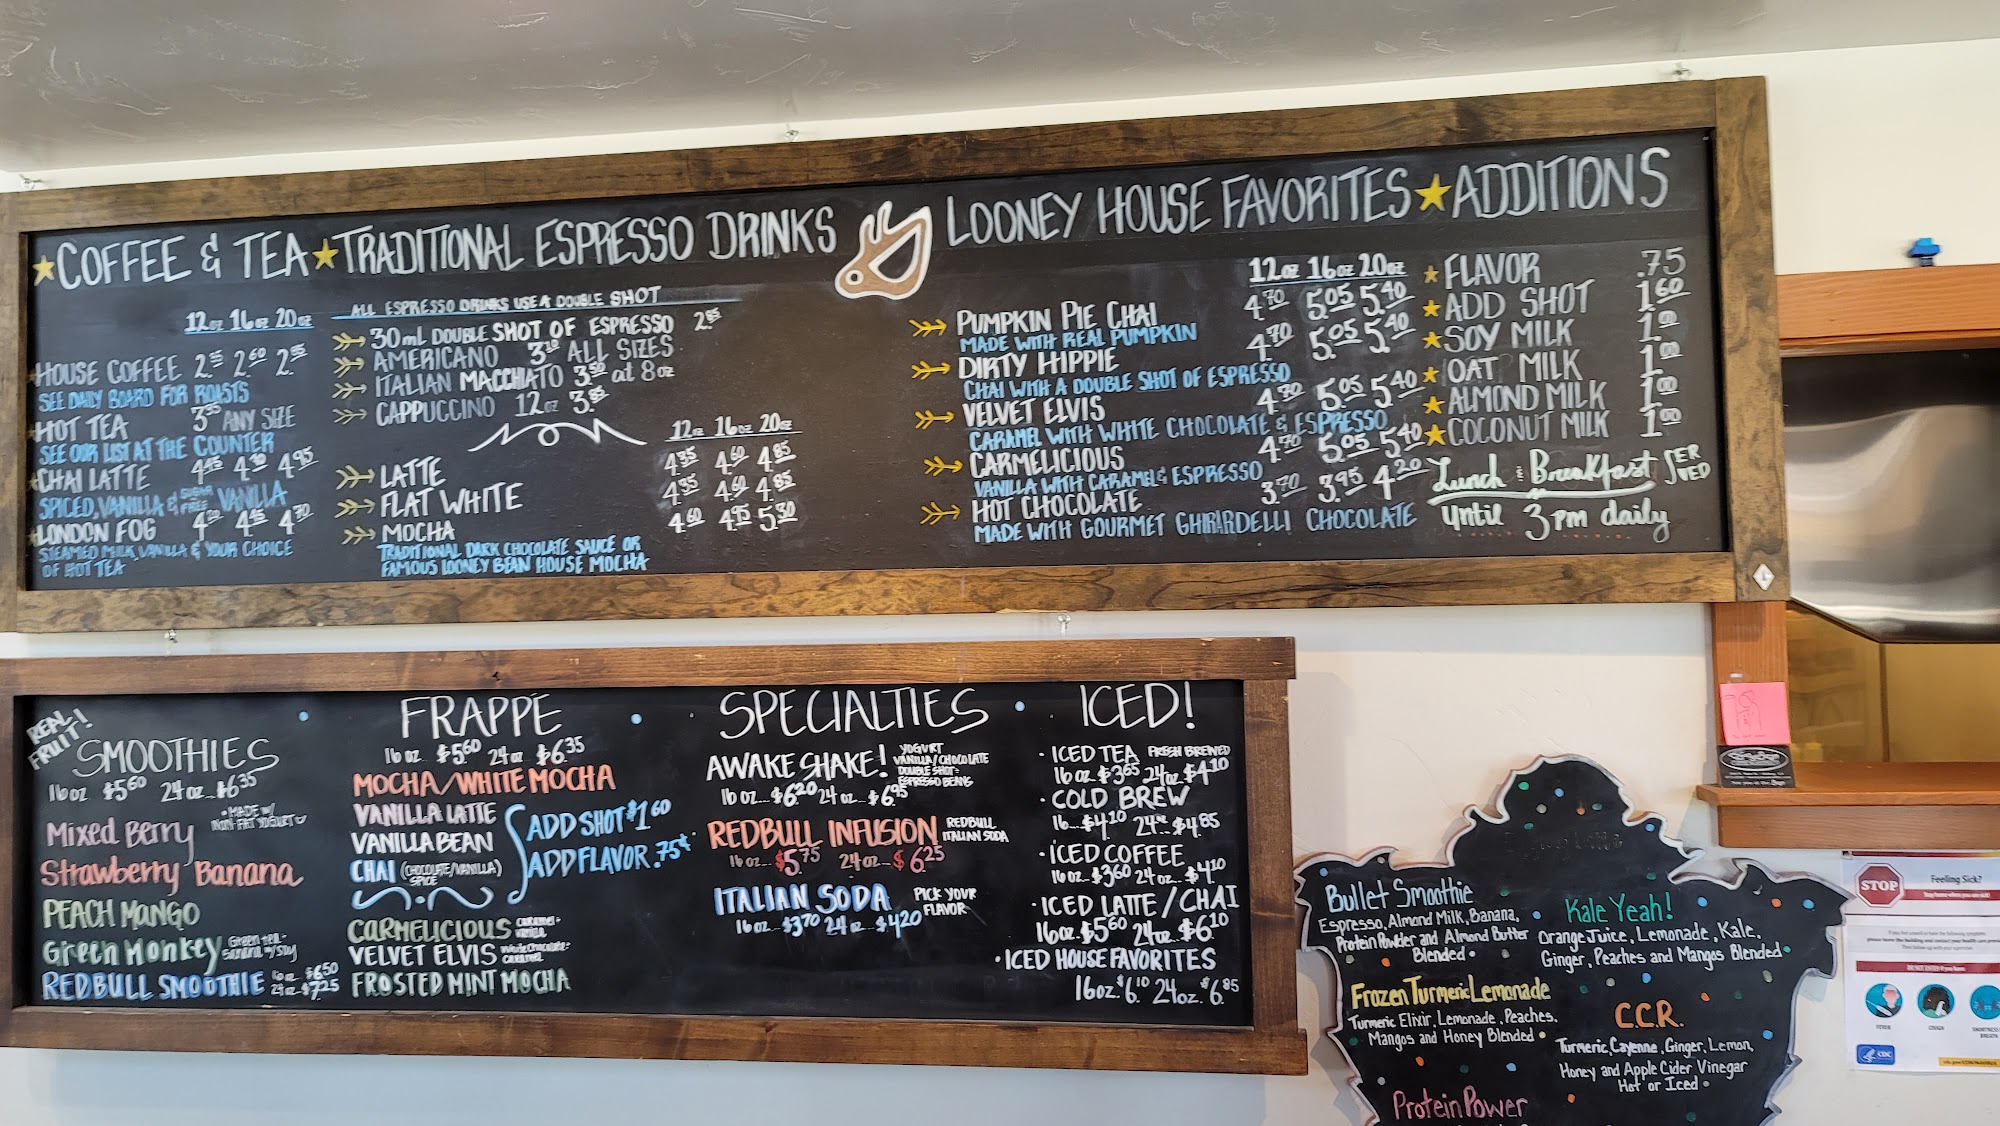 ★COFFEE & TEA★TRADITIONAL ESPRESSO DRINKS
LOONEY HOUSE FAVORITES★ADDITIONS
12oz 16oz 20oz
HOUSE COFFEE 2.35 2.60 2.85
SEE DAILY BOARD FOR ROASTS
HOT TEA 3.35 ANY SIZE
SEE OUR LIST AT THE COUNTER
CHAI LATTE 4.45 4.70 4.95
SPICED, VANILLA & SUGAR FREE VANILLA
LONDON FOG 4.20 4.45 4.70
STEAMED MILK, VANILLA & YOUR CHOICE
OF HOT TEA
ALL ESPRESSO DRINKS USE A DOUBLE SHOT
30mL DOUBLE SHOT OF ESPRESSO 2.85
AMERICANO 3.10 ALL SIZES
ITALIAN MACCHIATO 3.50 at 8oz
CAPPUCCINO 12oz 3.85
12oz 16oz 20oz
LATTE 4.35 4.60 4.85
FLAT WHITE 4.35 4.60 4.85
MOCHA 4.60 4.95 5.30
TRADITIONAL DARK CHOCOLATE SAUCE OR
FAMOUS LOONEY BEAN HOUSE MOCHA
12oz 16oz 20oz
PUMPKIN PIE CHAI 4.70 5.05 5.40
MADE WITH REAL PUMPKIN
DIRTY HIPPIE 4.70 5.05 5.40
CHAI WITH A DOUBLE SHOT OF ESPRESSO
VELVET ELVIS 4.70 5.05 5.40
CARAMEL WITH WHITE CHOCOLATE & ESPRESSO
CARMELICIOUS 4.70 5.05 5.40
VANILLA WITH CARAMEL & ESPRESSO
HOT CHOCOLATE 3.70 3.95 4.20
MADE WITH GOURMET GHIRARDELLI CHOCOLATE
★FLAVOR .75
★ADD SHOT 1.60
★SOY MILK 1.00
★OAT MILK 1.00
★ALMOND MILK 1.00
★COCONUT MILK 1.00
Lunch & Breakfast SERVED
until 3pm daily
REAL FRUIT!
SMOOTHIES
16oz $5.60 24oz $6.35
•MADE W/
NON-FAT YOGURT
Mixed Berry
Strawberry Banana
PEACH MANGO
Green Monkey Green tea-
banana w/ soy
REDBULL SMOOTHIE 16oz $6.50
24oz $7.25
FRAPPE
16oz $5.60 24oz $6.35
MOCHA/WHITE MOCHA
VANILLA LATTE
VANILLA BEAN
CHAI (CHOCOLATE/VANILLA)
SPICE
ADD SHOT $1.60
ADD FLAVOR .75¢
CARMELICIOUS caramel+
vanilla
VELVET ELVIS white chocolate+
caramel
FROSTED MINT MOCHA
SPECIALTIES
AWAKE SHAKE! YOGURT
VANILLA/CHOCOLATE
DOUBLE SHOT+
ESPRESSO BEANS
16oz...$6.20 24oz...$6.95
REDBULL INFUSION REDBULL
ITALIAN SODA
16oz...$5.75 24oz...$6.25
ITALIAN SODA PICK YOUR
FLAVOR
16oz...$3.70 24oz...$4.20
ICED!
• ICED TEA FRESH BREWED
16oz $3.65 24oz $4.10
• COLD BREW
16...$4.10 24oz...$4.85
• ICED COFFEE
16oz $3.60 24oz $4.10
• ICED LATTE/CHAI
16oz $5.60 24oz $6.10
• ICED HOUSE FAVORITES
16oz $6.10 24oz $6.85
Bullet Smoothie
Espresso, Almond Milk, Banana,
Protein Powder and Almond Butter
Blended
Kale Yeah!
Orange Juice, Lemonade, Kale,
Ginger, Peaches and Mangos Blended
Frozen Turmeric Lemonade
Turmeric Elixir, Lemonade, Peaches,
Mangos and Honey Blended
C.C.R.
Turmeric, Cayenne, Ginger, Lemon,
Honey and Apple Cider Vinegar
Hot or Iced
Protein Power
STOP
Feeling Sick?
FEVER
COUGH
CDC